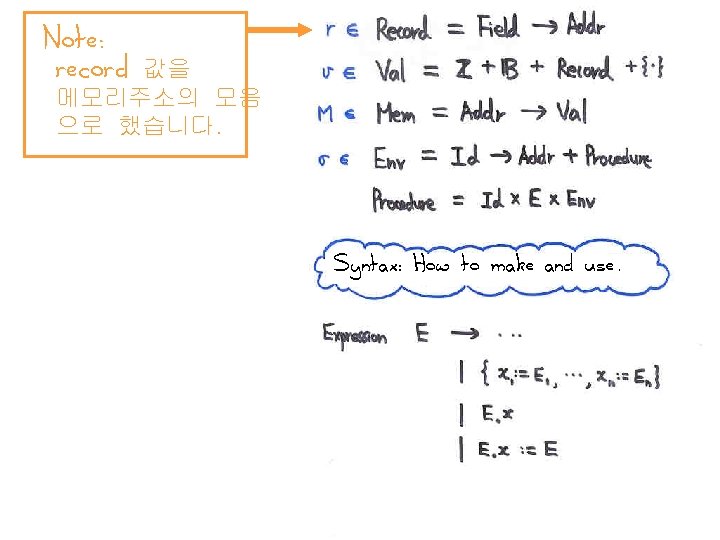 Note:
record 값을
메모리주소의 모음
으로 했습니다.
r ∈ Record = Field → Addr
v ∈ Val = Z + B + Record + {·}
M ∈ Mem = Addr → Val
σ ∈ Env = Id → Addr + Procedure
Procedure = Id × E × Env
Syntax: How to make and use.
Expression E → ...
| { x₁:=E₁, ..., xₙ:=Eₙ}
| E.x
| E.x := E